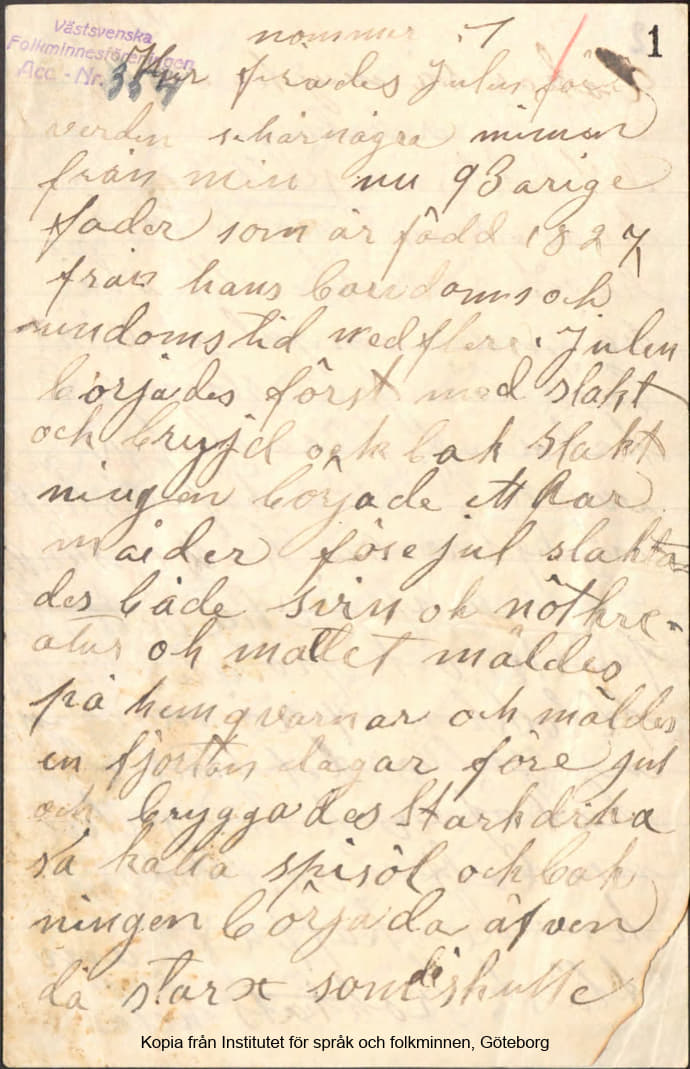 Västsvenska
Folkminnesföreningen
Acc - Nr. 334
1
nommur 1
Hur firades Julen för
verden se här några minnen
från min nu 93 arige
fader som är född 1827
från hans barndoms och
undomstid med flere. Julen
börjades först med slakt
och bryjd ock bak Slakt
ningen började ett par
månder före jul slakta-
des både svin ok nötkre-
atur ok maltet mäldes
på hemqvarnar och mäldes
en fjorton dagar före jul
och bryggades Starkdrika
så kalla spisöl och bak
ningen börjada äfven
då starx som di skulle
Kopia från Institutet för språk och folkminnen, Göteborg